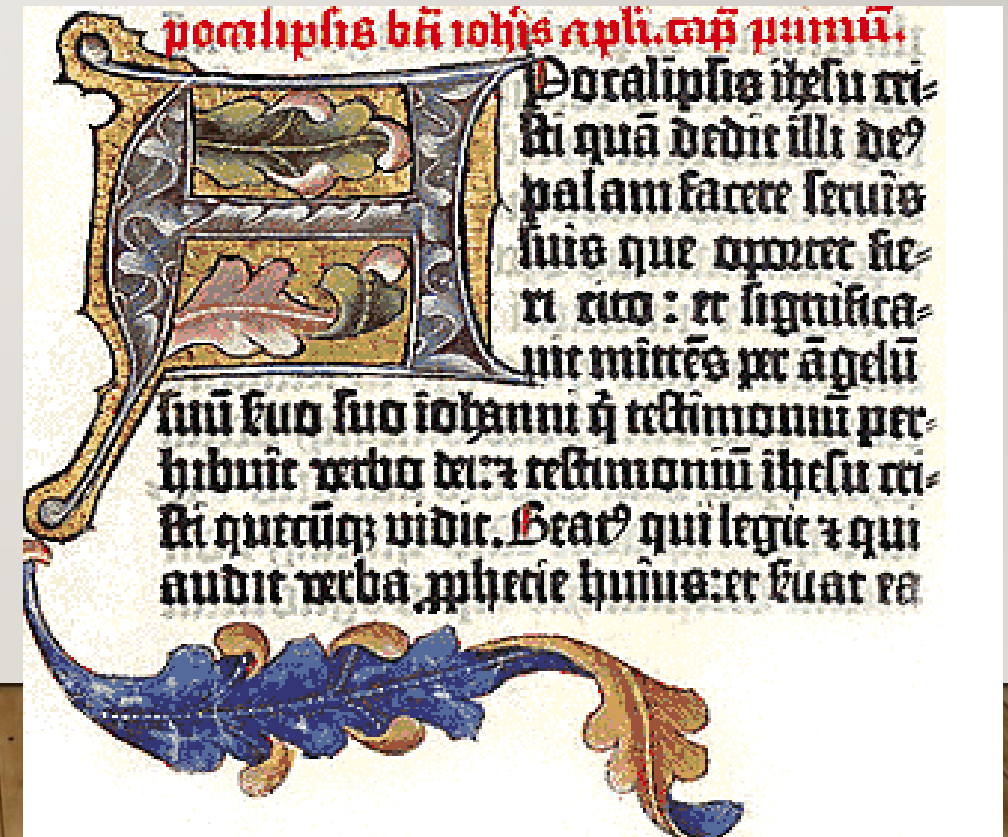 pocalipsis bt̄i ioh̄is apl̓i. cap̄ primū.
Apocalipsis ihesu cri⸗
sti quā dedit illi deꝰ
palam facere seruis
suis que oportet fie⸗
ri cito : et significa⸗
uit mittēs per āgelū
suū ẜuo suo iohanni q̄ testimoniū per⸗
hibuit verbo dei: ⁊ testimoniū ihesu cri⸗
sti quecūq; vidit. Beatꝰ qui legit ⁊ qui
audit verba ꝓphetie huius: et ẜuat ea